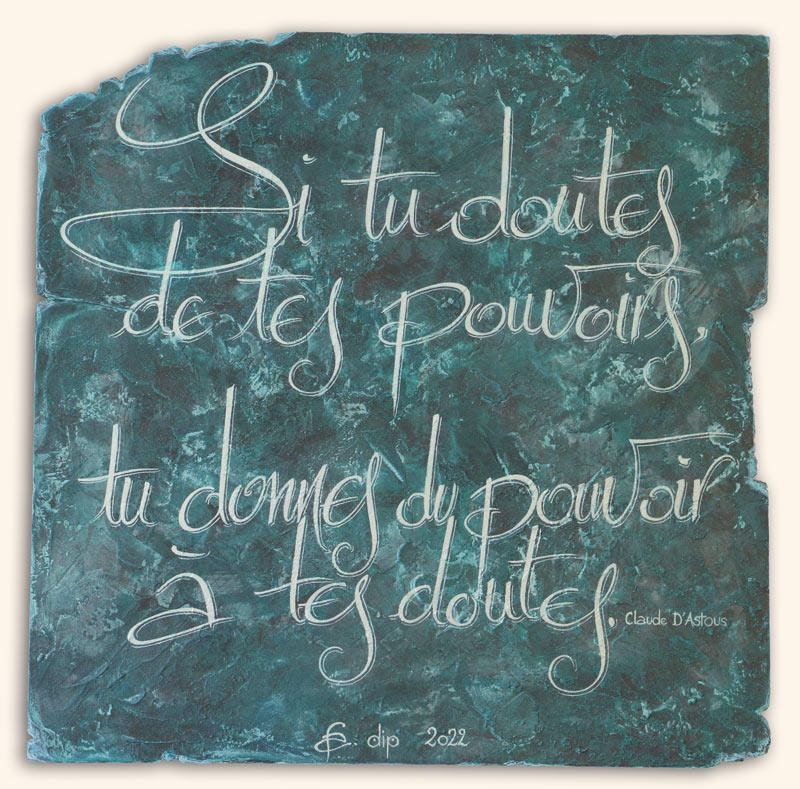 Si tu doutes
de tes pouvoirs,
tu donnes du pouvoir
à tes doutes.
Claude D'Astous
dip 2022